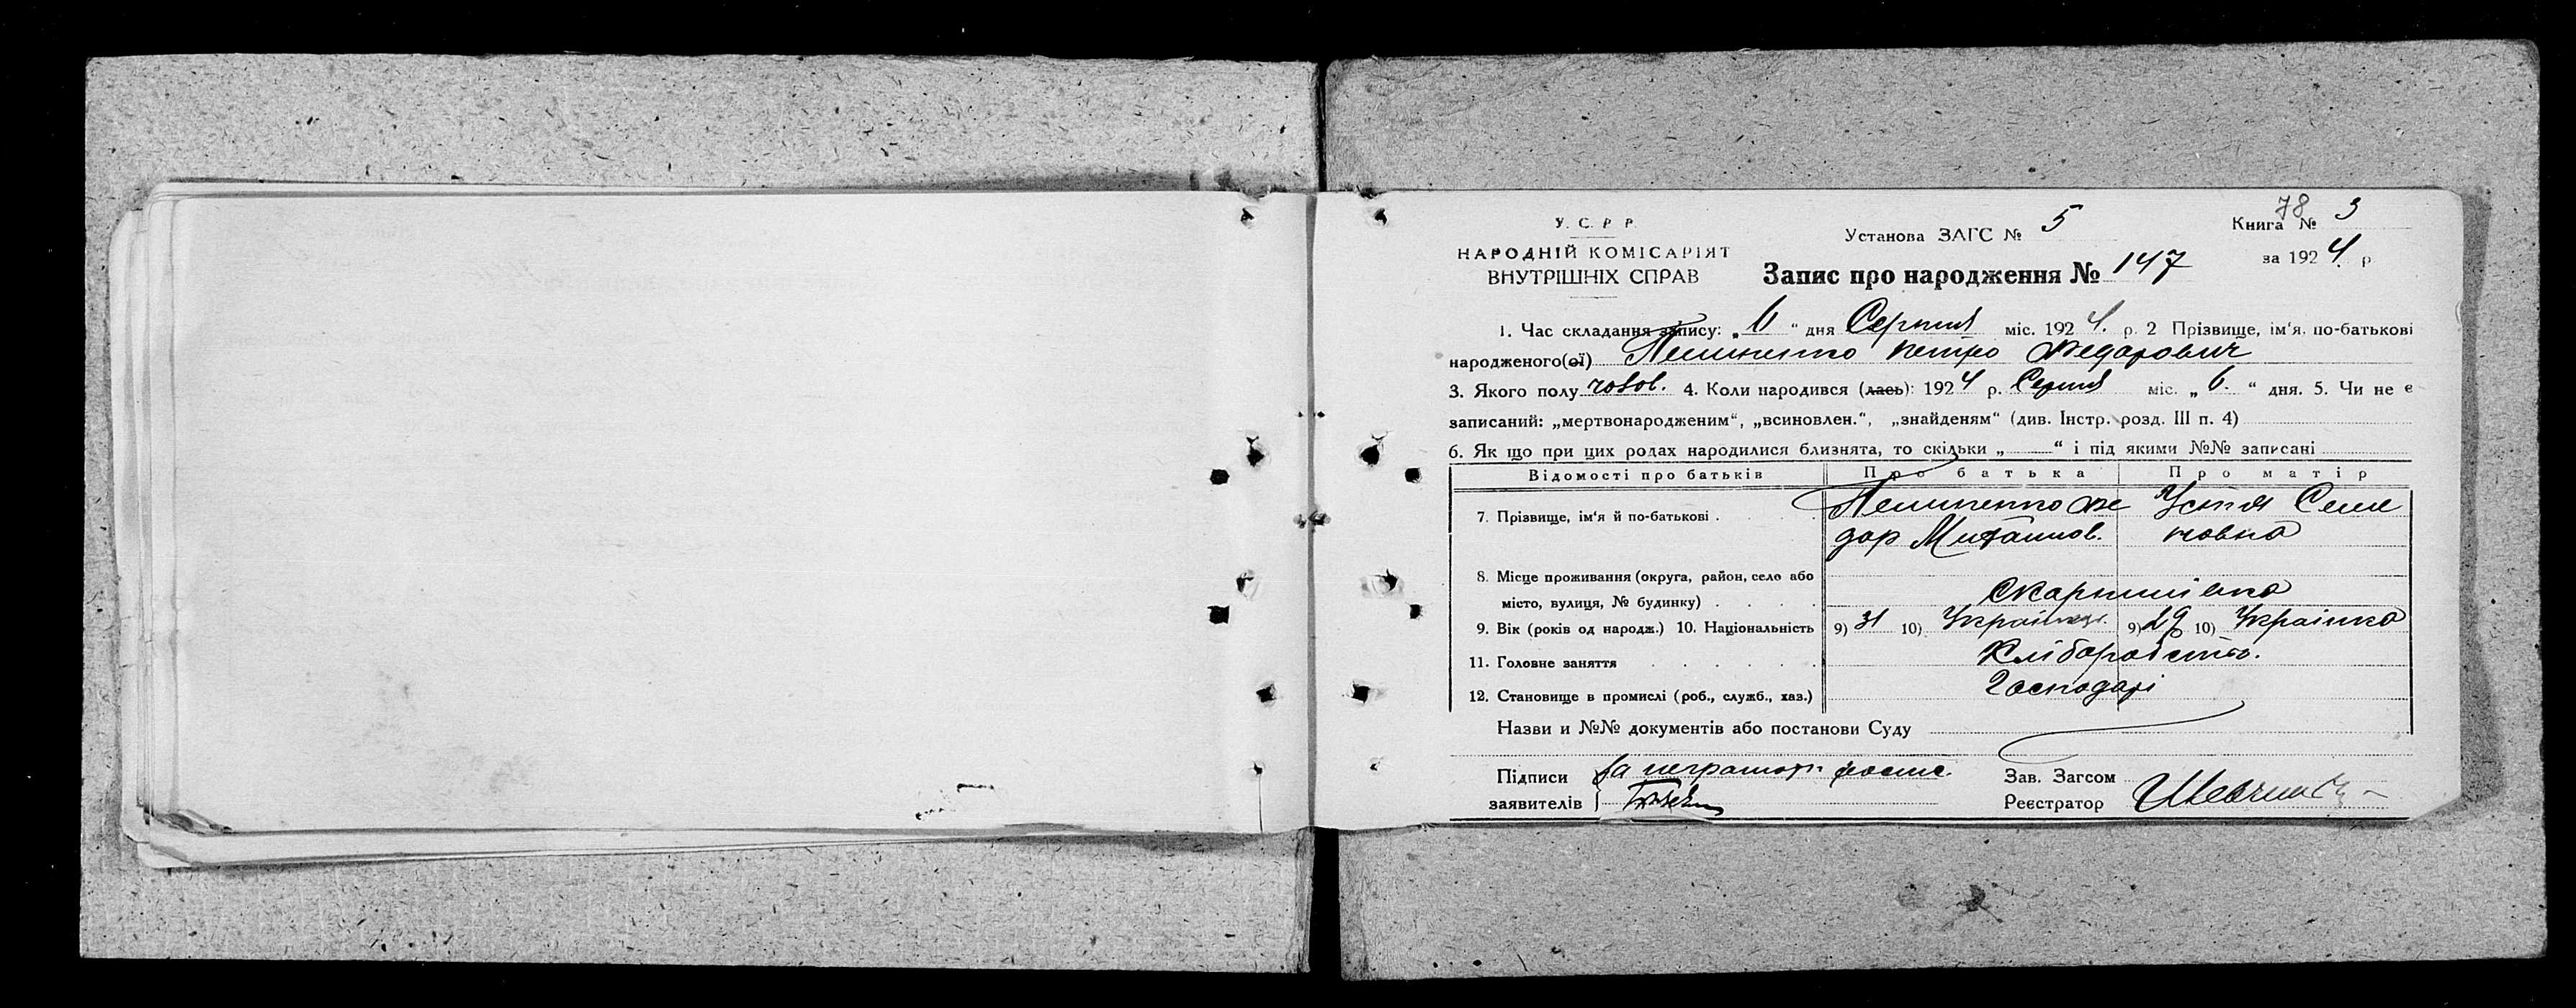 78
У. С. Р. Р.
НАРОДНІЙ КОМІСАРІЯТ
ВНУТРІШНІХ СПРАВ
Установа ЗАГС № 5
Книга № 3
за 1924 р.
Запис про народження № 147
1. Час складання запису: „6“ дня Серпня міс. 1924. р. 2 Прізвище, ім‘я, по-батькові
народженого(ої) Петро Федорович
3. Якого полу чолов. 4. Коли народився (лась): 1924 р. Серпня міс. „6.“ дня. 5. Чи не є
записаний: „мертвонародженим“, „всиновлен.“, „знайденям“ (див. Інстр. розд. III п. 4)
6. Як що при цих родах народилися близнята, то скільки „ “ і під якими №№ записані
Відомості про батьків Про батька Про матір
7. Прізвище, ім‘я й по-батькові . Фе Устя Семе
дор Михайлов. новна
8. Місце проживання (округа, район, село або
місто, вулиця, № будинку) . . . .
9. Вік (років од народж.) 10. Національність 9) 31 10) Українець 9) 29 10) Українка
11. Головне заняття . . . . . . Хліборобство.
12. Становище в промислі (роб., служб., хаз.) Господарі
Назви и №№ документів або постанови Суду
Підписи За неграмотн. роспис.
заявителів
Зав. Загсом
Реєстратор